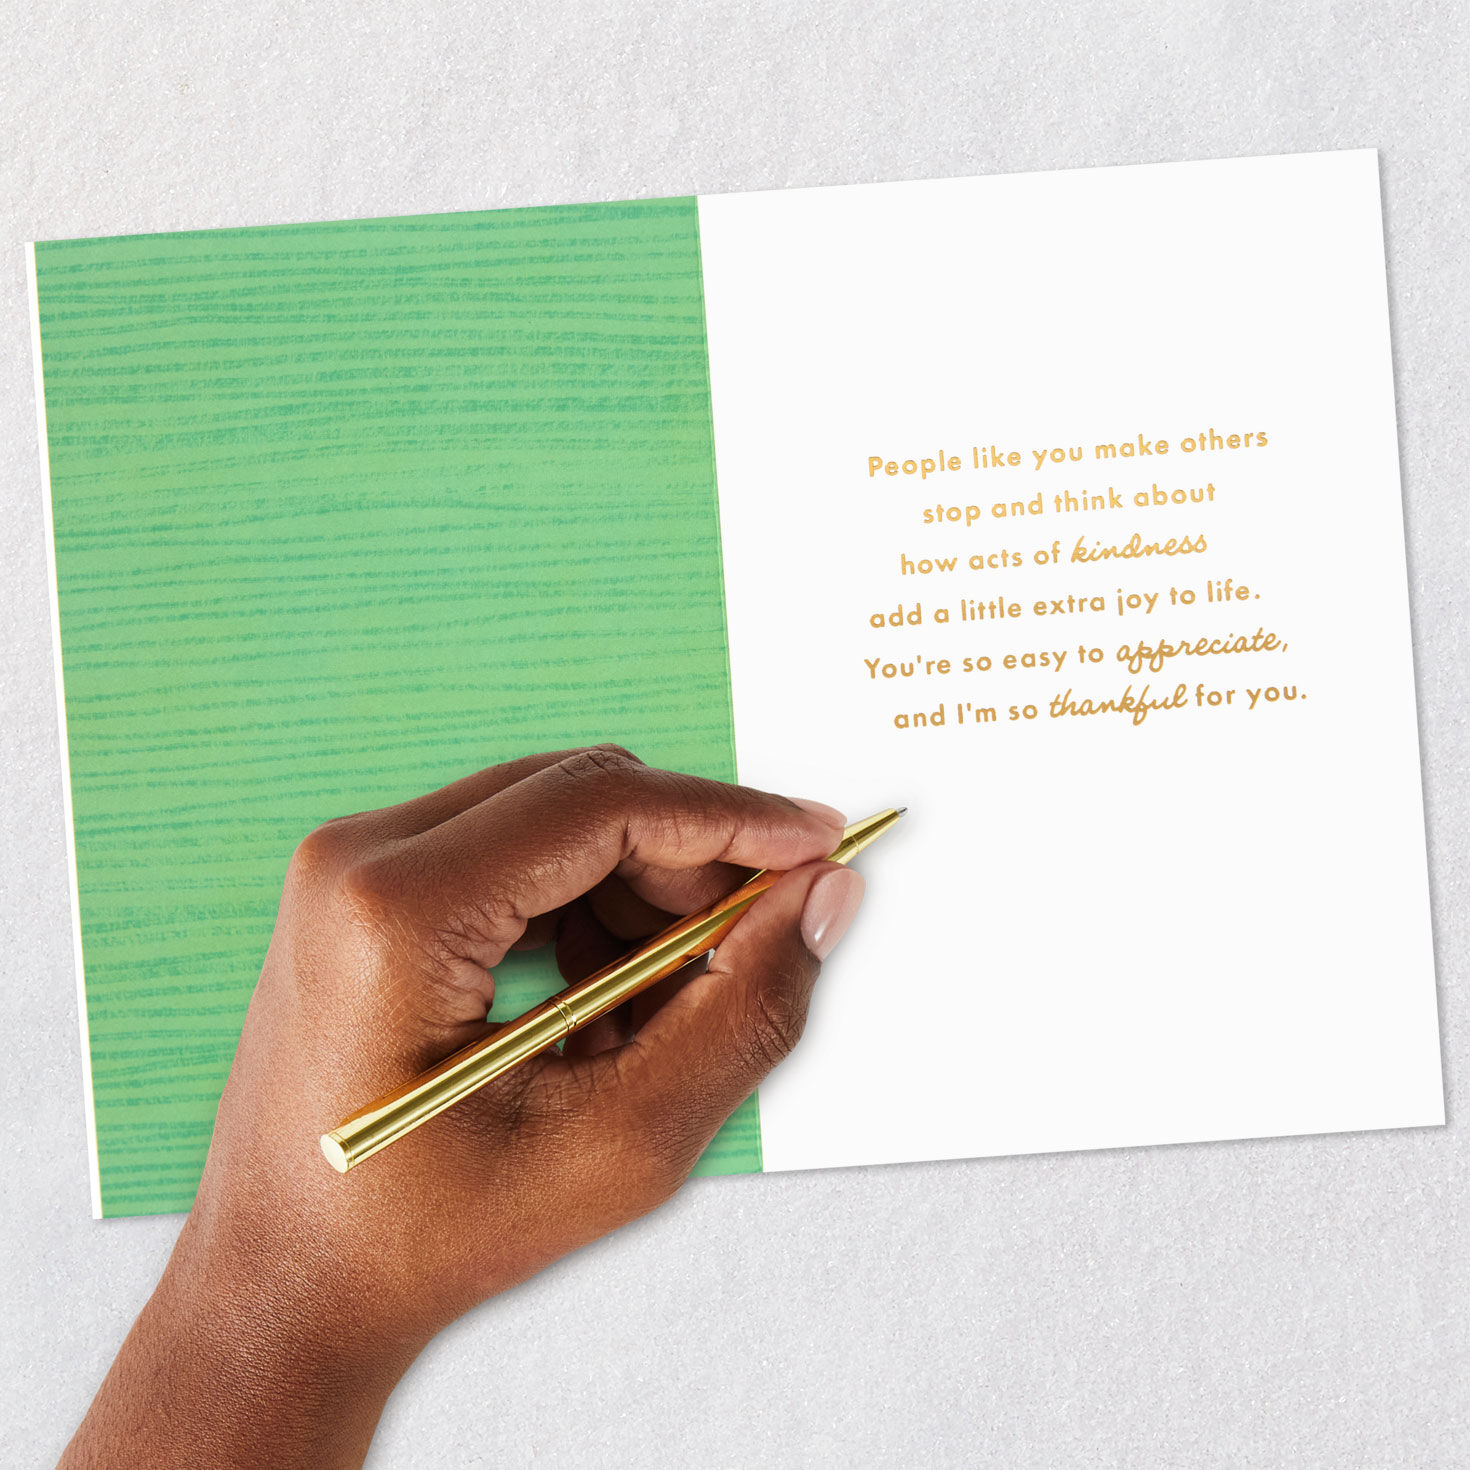 People like you make others
stop and think about
how acts of kindness
add a little extra joy to life.
You're so easy to appreciate,
and I'm so thankful for you.